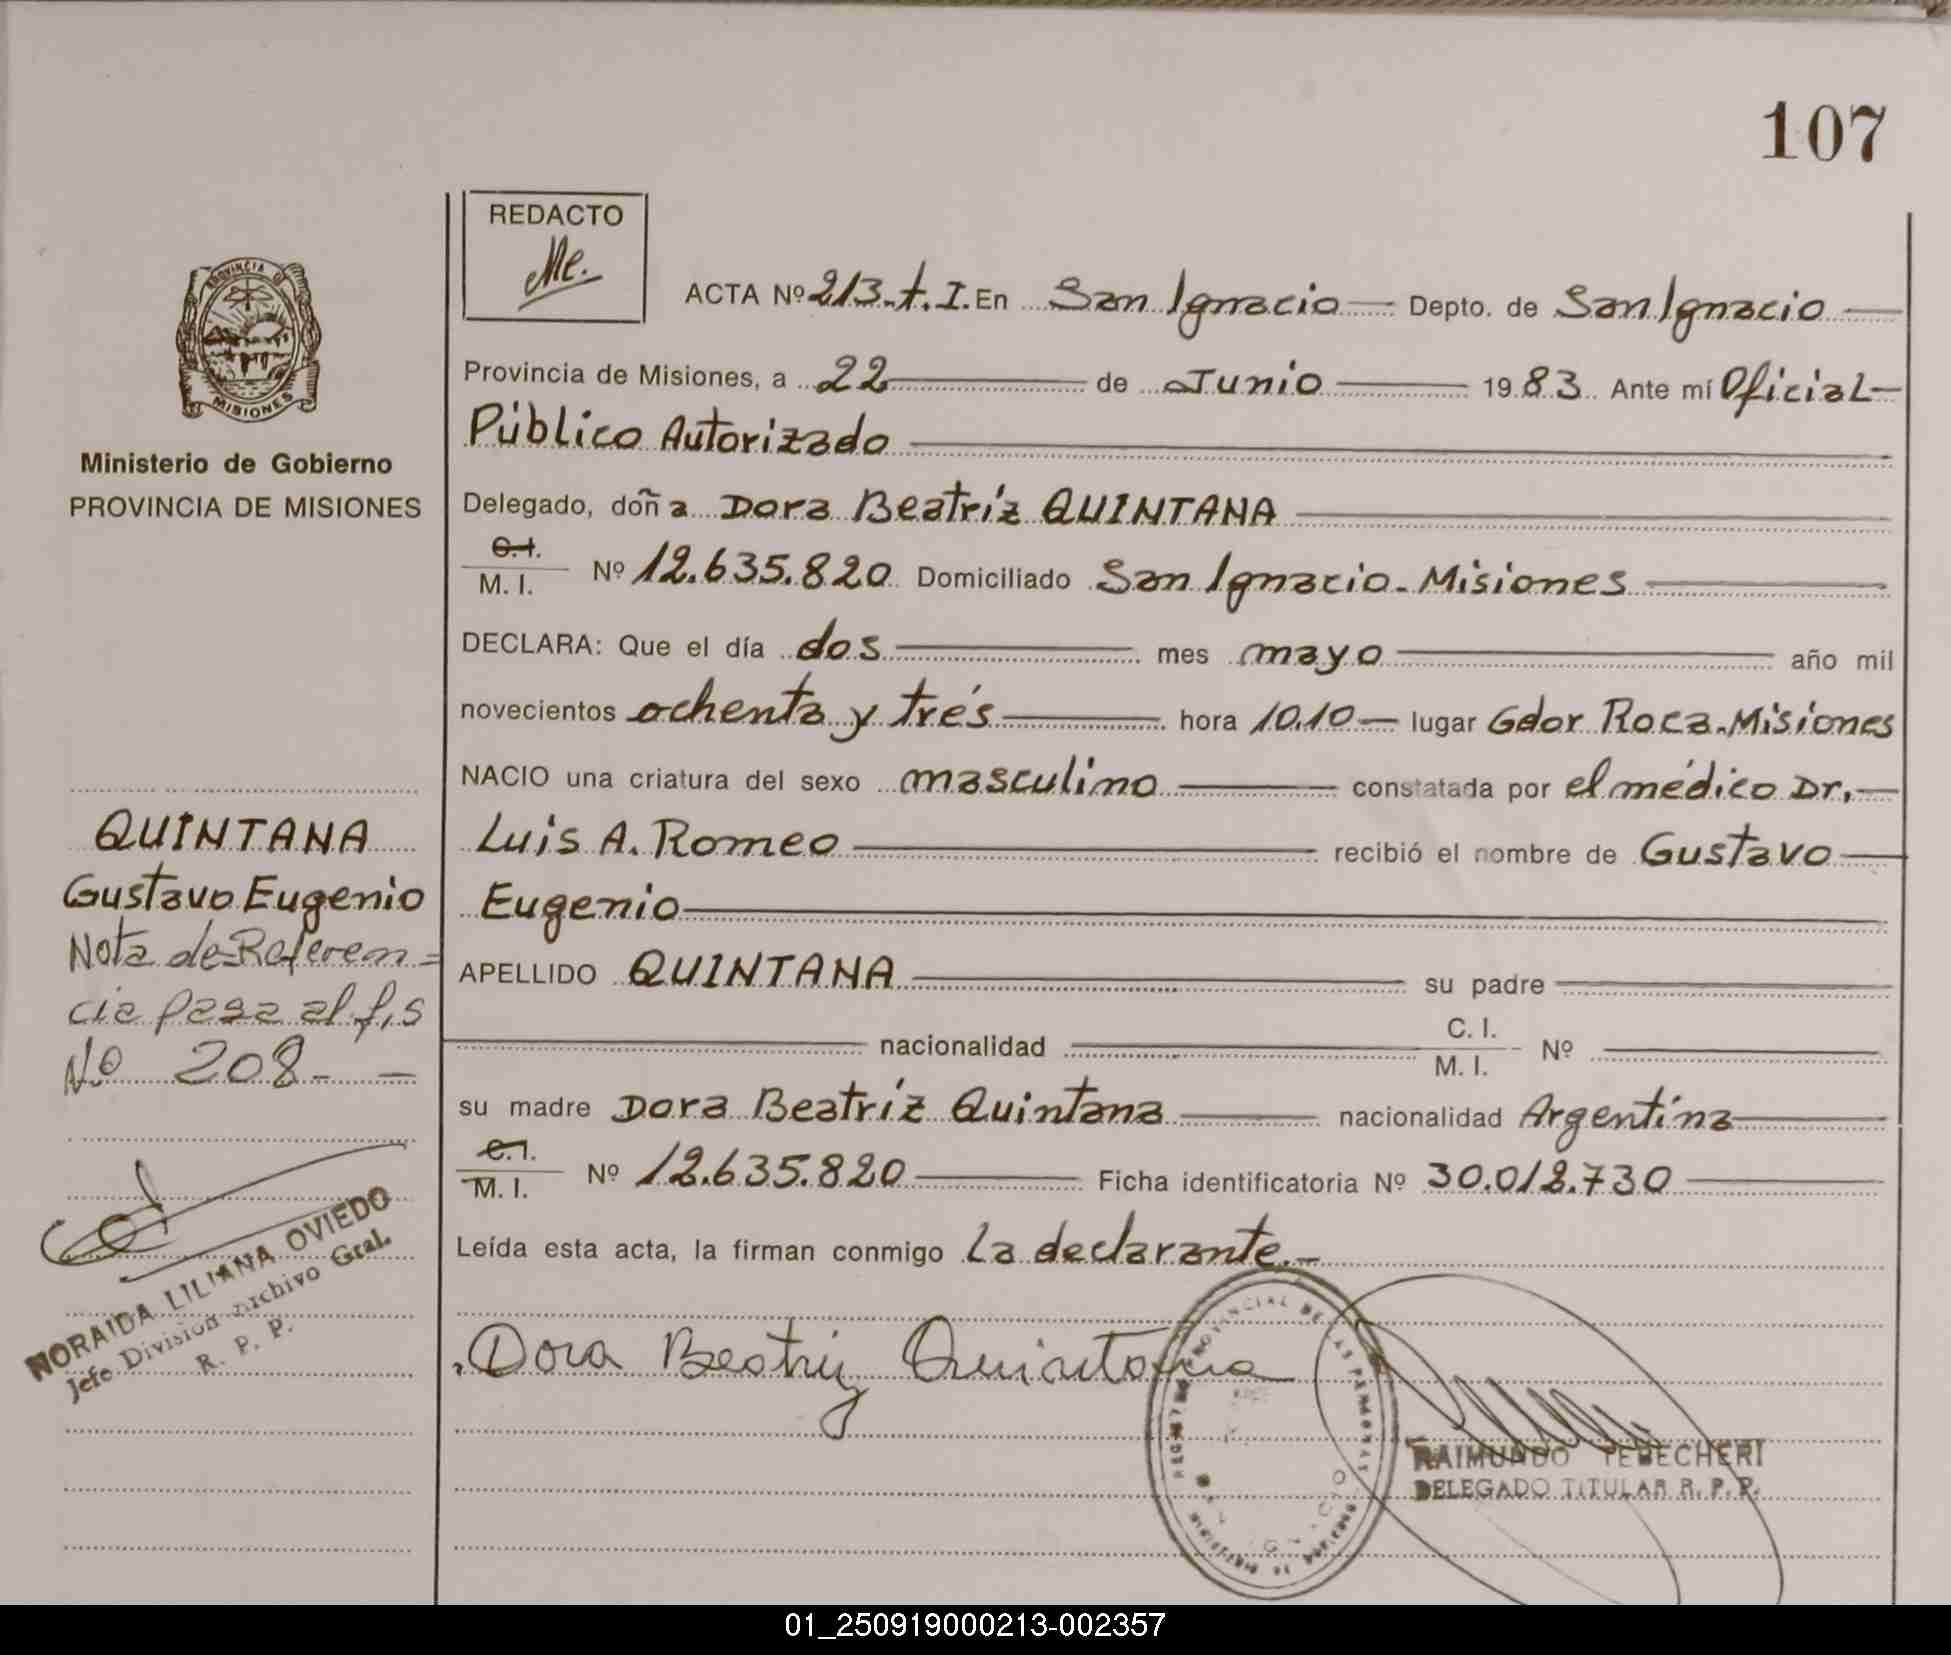 107
REDACTO
Me.
ACTA Nº 213.t.I. En San Ignacio Depto. de San Ignacio
Provincia de Misiones, a 22 de Junio 1983 Ante mí Oficial
Público Autorizado
Delegado, doña Dora Beatríz QUINTANA
C.I. M. I. Nº 12.635.820 Domiciliado San Ignacio - Misiones
DECLARA: Que el día dos mes mayo año mil
novecientos ochenta y trés hora 10.10 lugar Gdor Roca - Misiones
NACIO una criatura del sexo masculino constatada por el médico Dr.
Luis A. Romeo recibió el nombre de Gustavo
Eugenio
APELLIDO QUINTANA su padre
nacionalidad C. I. M. I. Nº
su madre Dora Beatríz Quintana nacionalidad Argentina
C.I. M. I. Nº 12.635.820 Ficha identificatoria Nº 30.012.730
Leída esta acta, la firman conmigo La declarante.-
Dora Beatriz Quintana
RAIMUNDO TEBECHERI
DELEGADO TITULAR R. P. P.
PROVINCIA DE
MISIONES
Ministerio de Gobierno
PROVINCIA DE MISIONES
QUINTANA
Gustavo Eugenio
Nota de Referen=
cia pasa al f,s
Nº 208 - -
NORAIDA LILIANA OVIEDO
Jefe División Archivo Gral.
R. P. P.
01_250919000213-002357